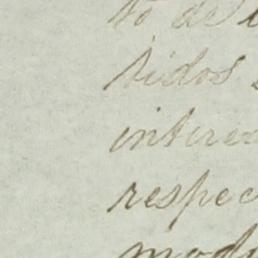 to de
tidos
interes
respec
modi